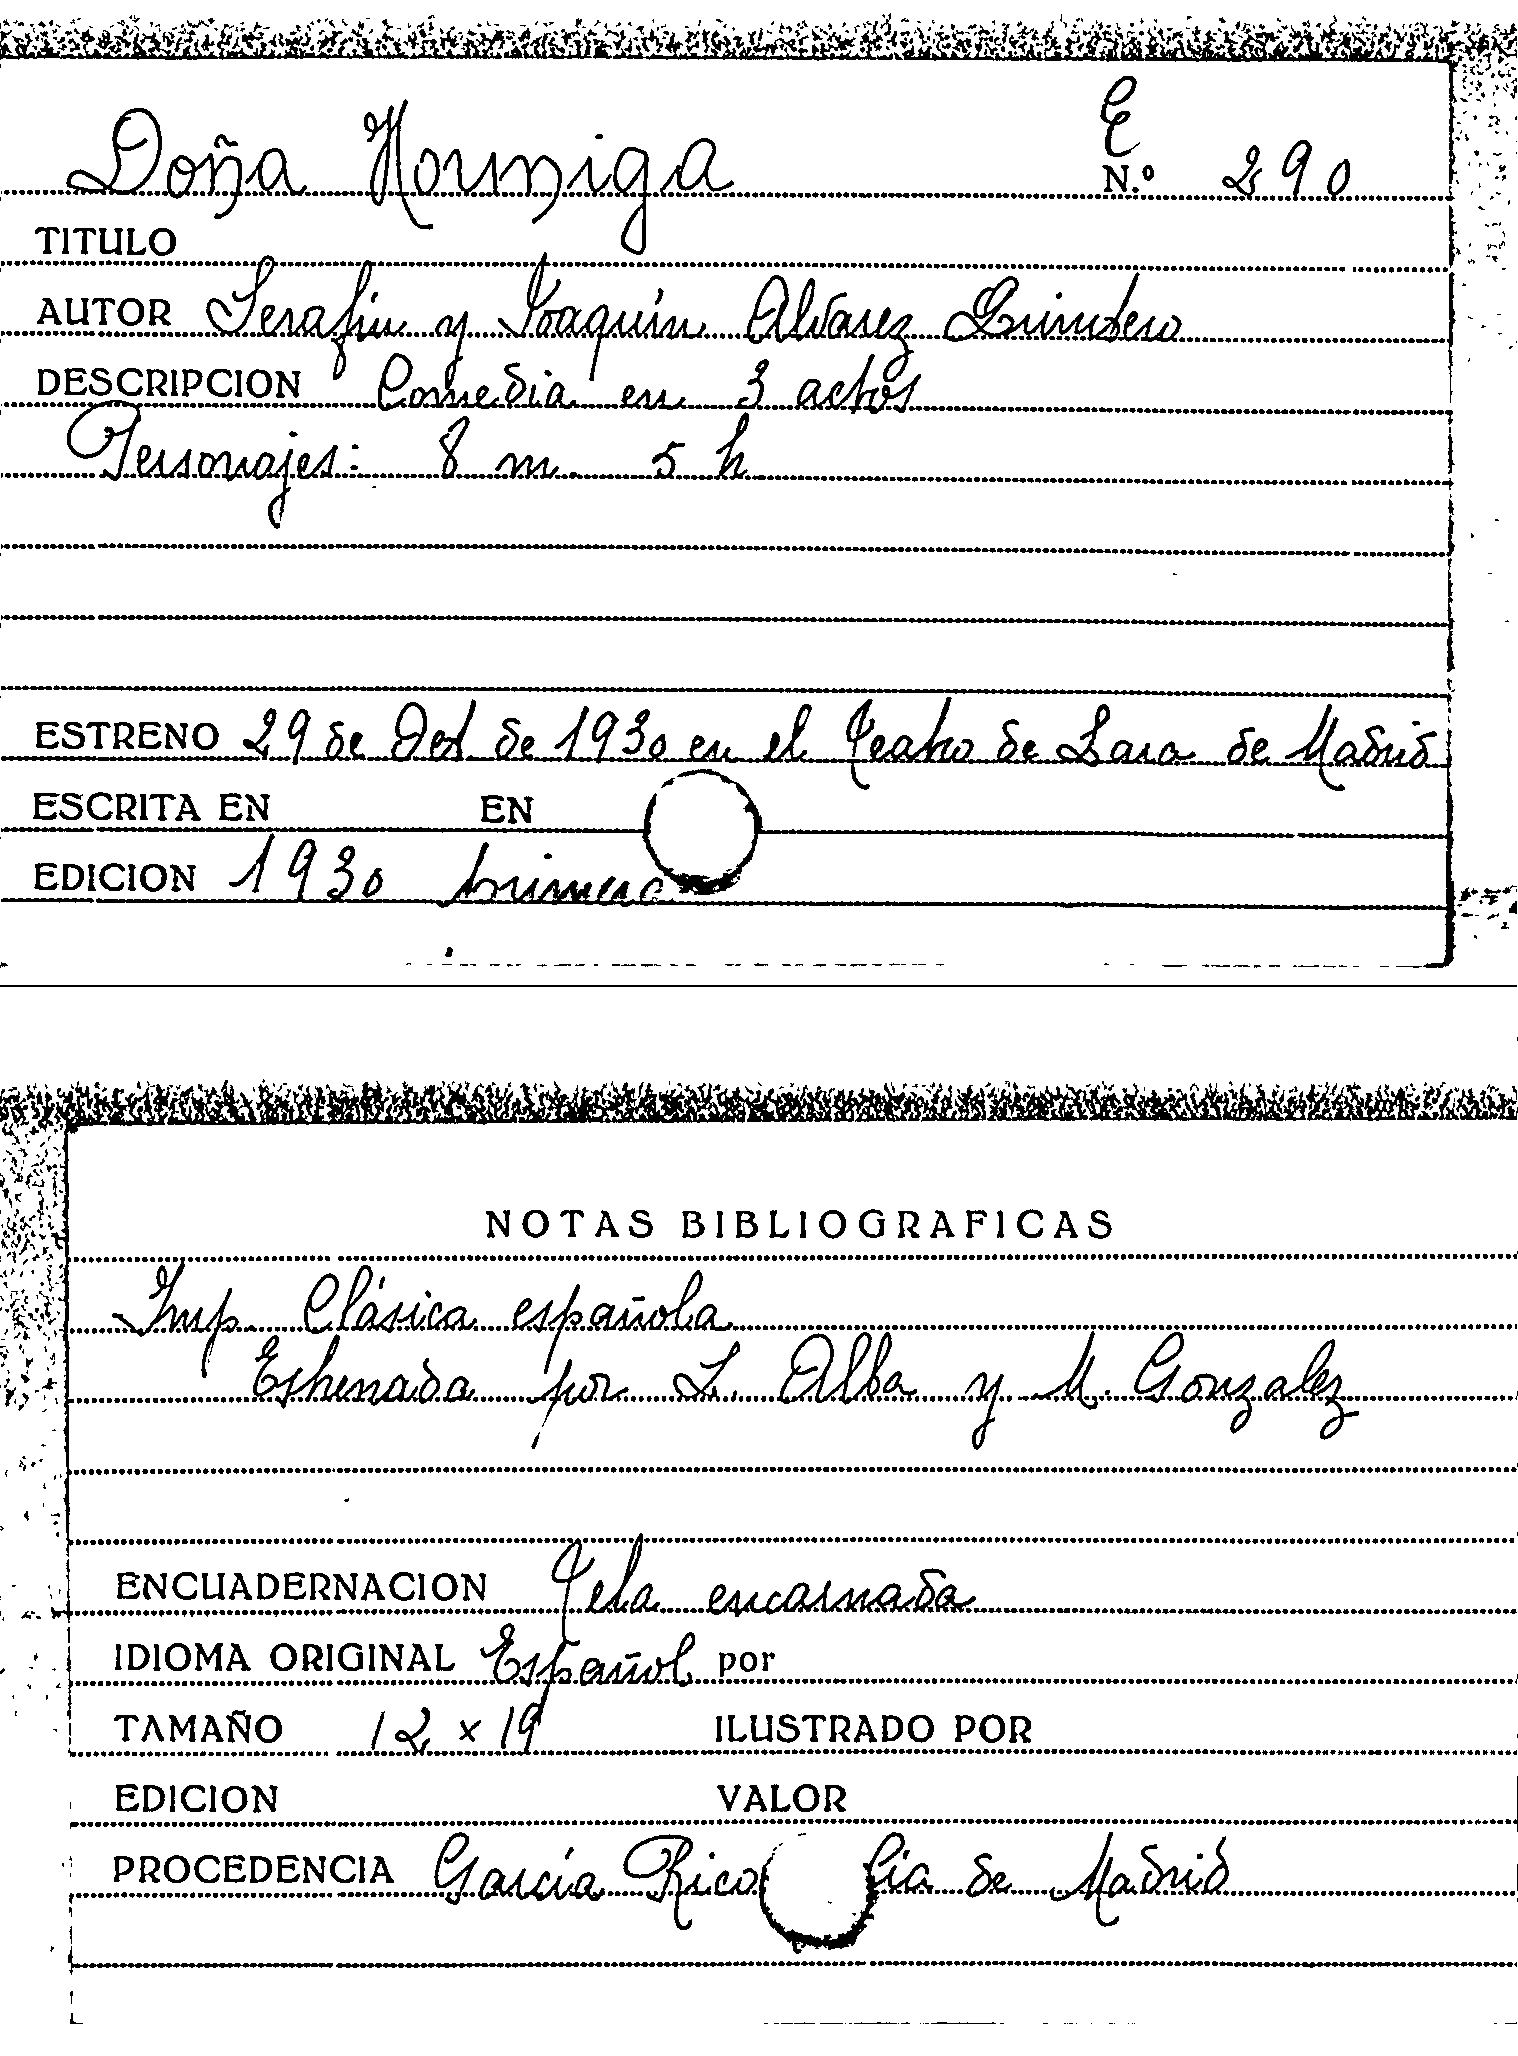 E
Doña Hormiga N.º 290
TITULO
AUTOR Serafin y Joaquín Alvarez Quintero
DESCRIPCION Comedia en 3 actos
Personajes: 8 m. 5 h
ESTRENO 29 de Oct de 1930 en el Teatro de Lara de Madrid
ESCRITA EN EN
EDICION 1930 primera
NOTAS BIBLIOGRAFICAS
Imp. Clásica española
Estrenada por L. Alba y M. Gonzalez
ENCUADERNACION Tela encarnada
IDIOMA ORIGINAL Español por
TAMAÑO 12 x 19 ILUSTRADO POR
EDICION VALOR
PROCEDENCIA García Rico Cía de Madrid